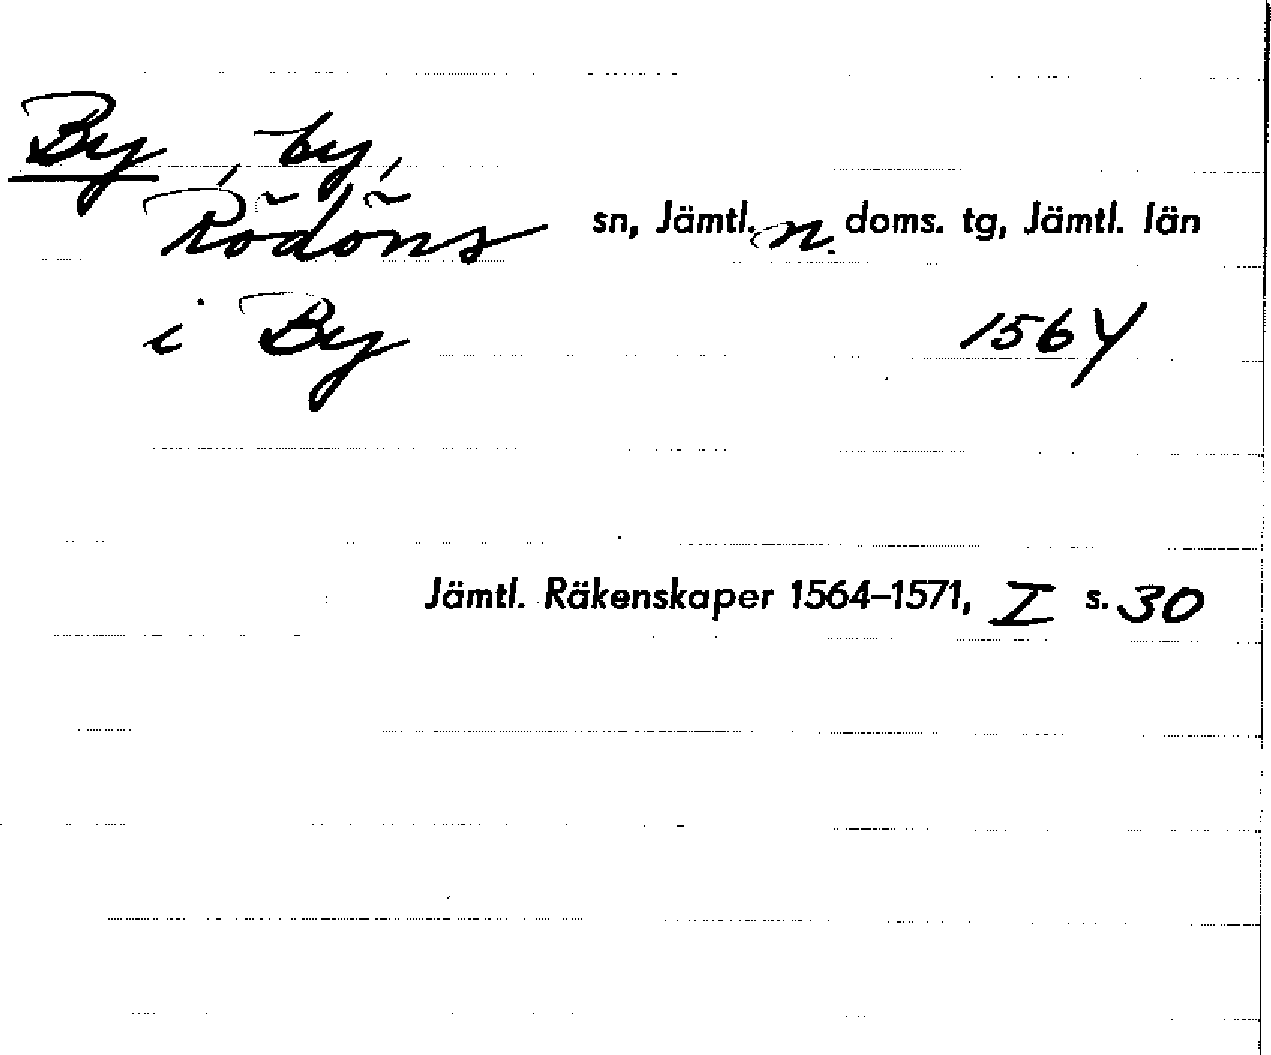 By, by,
Rödöns sn, Jämtl. n. doms. tg, Jämtl. län
i By 1564
Jämtl. Räkenskaper 1564–1571, I s. 30